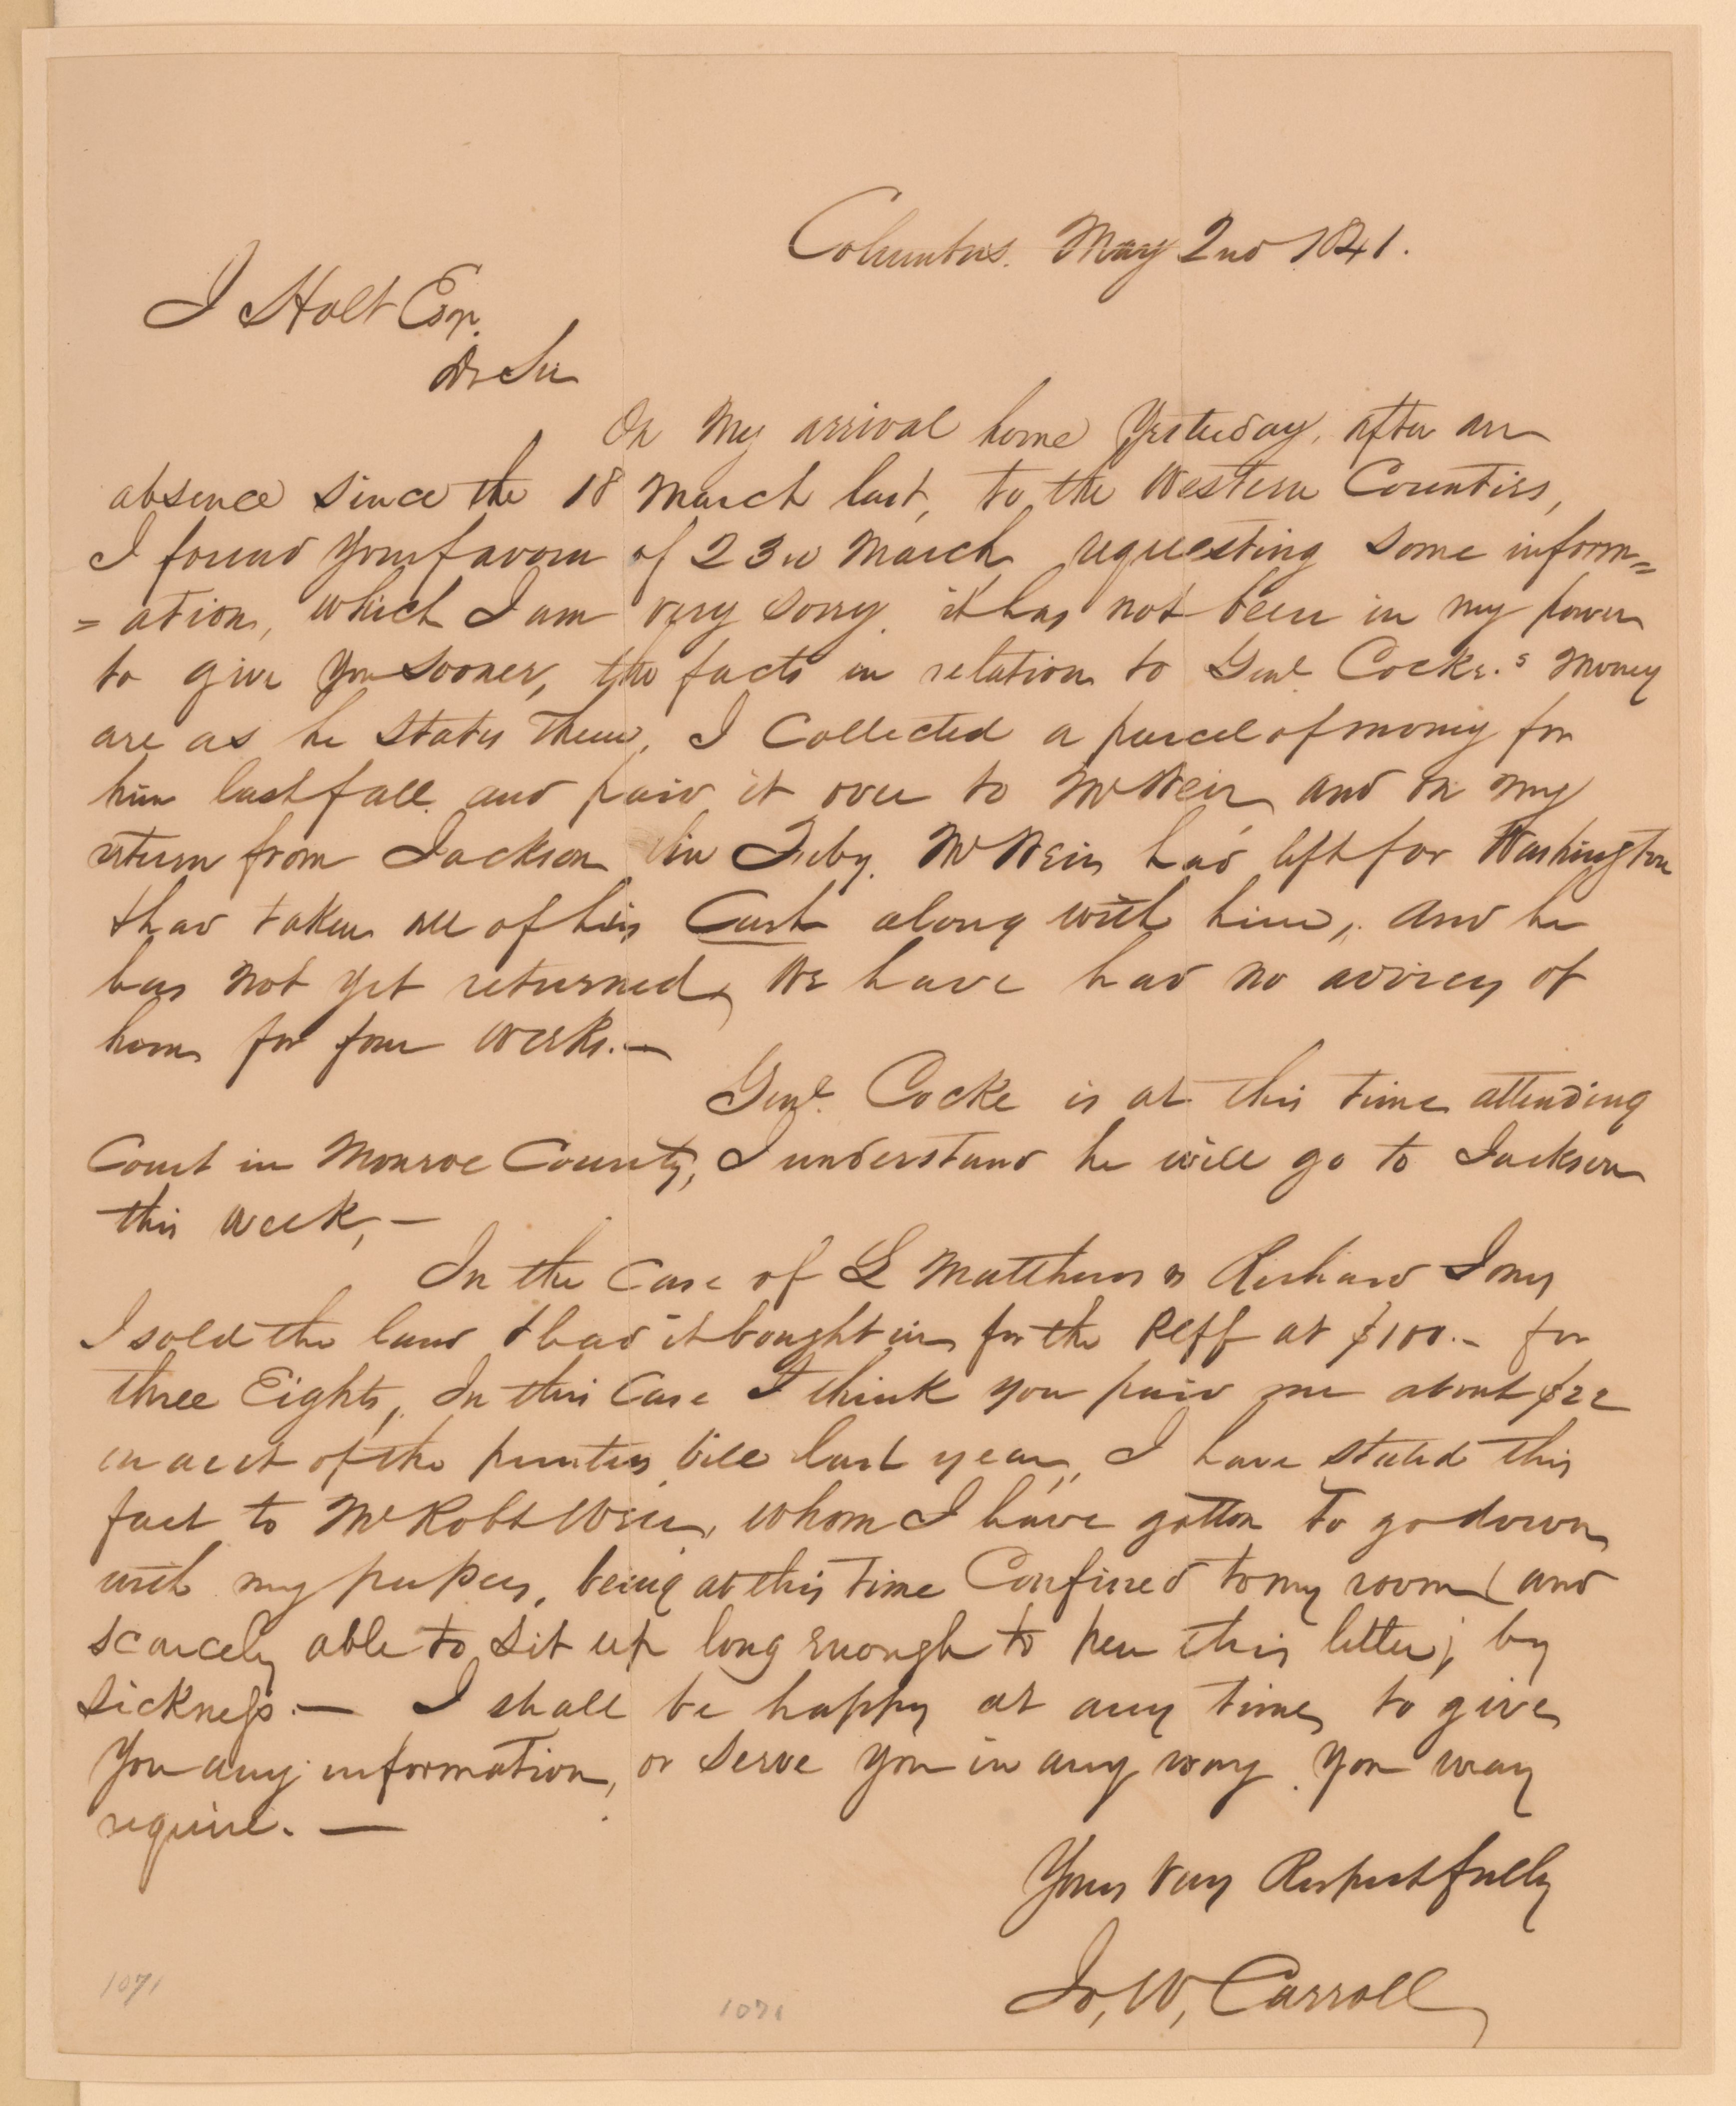 Columbus. May 2nd 1841.
J Holt Esqr.
Dr Sir
On My arrival home Yesterday, after an
absence since the 18 March last, to the Western Counties,
I found your favour of 23d March requesting some inform=
=ation, which I am very sorry it has not been in my power
to give you sooner, the facts in relation to Genl. Cocke's Money
are as he states them, I Collected a parcel of money for
him last fall and paid it over to Mr Weir and on my
return from Jackson in Feby. Mr Weir had left for Washington
& had taken all of his Cash along with him, and he
has not yet returned, We have had no advices of
home for four weeks.—
Genl. Cocke is at this time attending
Court in Monroe County, I understand he will go to Jackson
this week,—
In the Case of L Matthews vs Richard Jones
I sold the land & had it bought in for the Plff at $100.- for
three Eights, In this Case I think you paid me about $22
on acct of the printers bill last year, I have stated this
fact to Mr Robt Weir, whom I have gotten to go down
with my papers, being at this time Confined to my room (and
scarcely able to sit up long enough to pen this letter) by
sickness.— I shall be happy at any time to give
You any information, or serve you in any way you may
require.—
Yours very Respectfully
Jo, W, Carroll
1071
1071